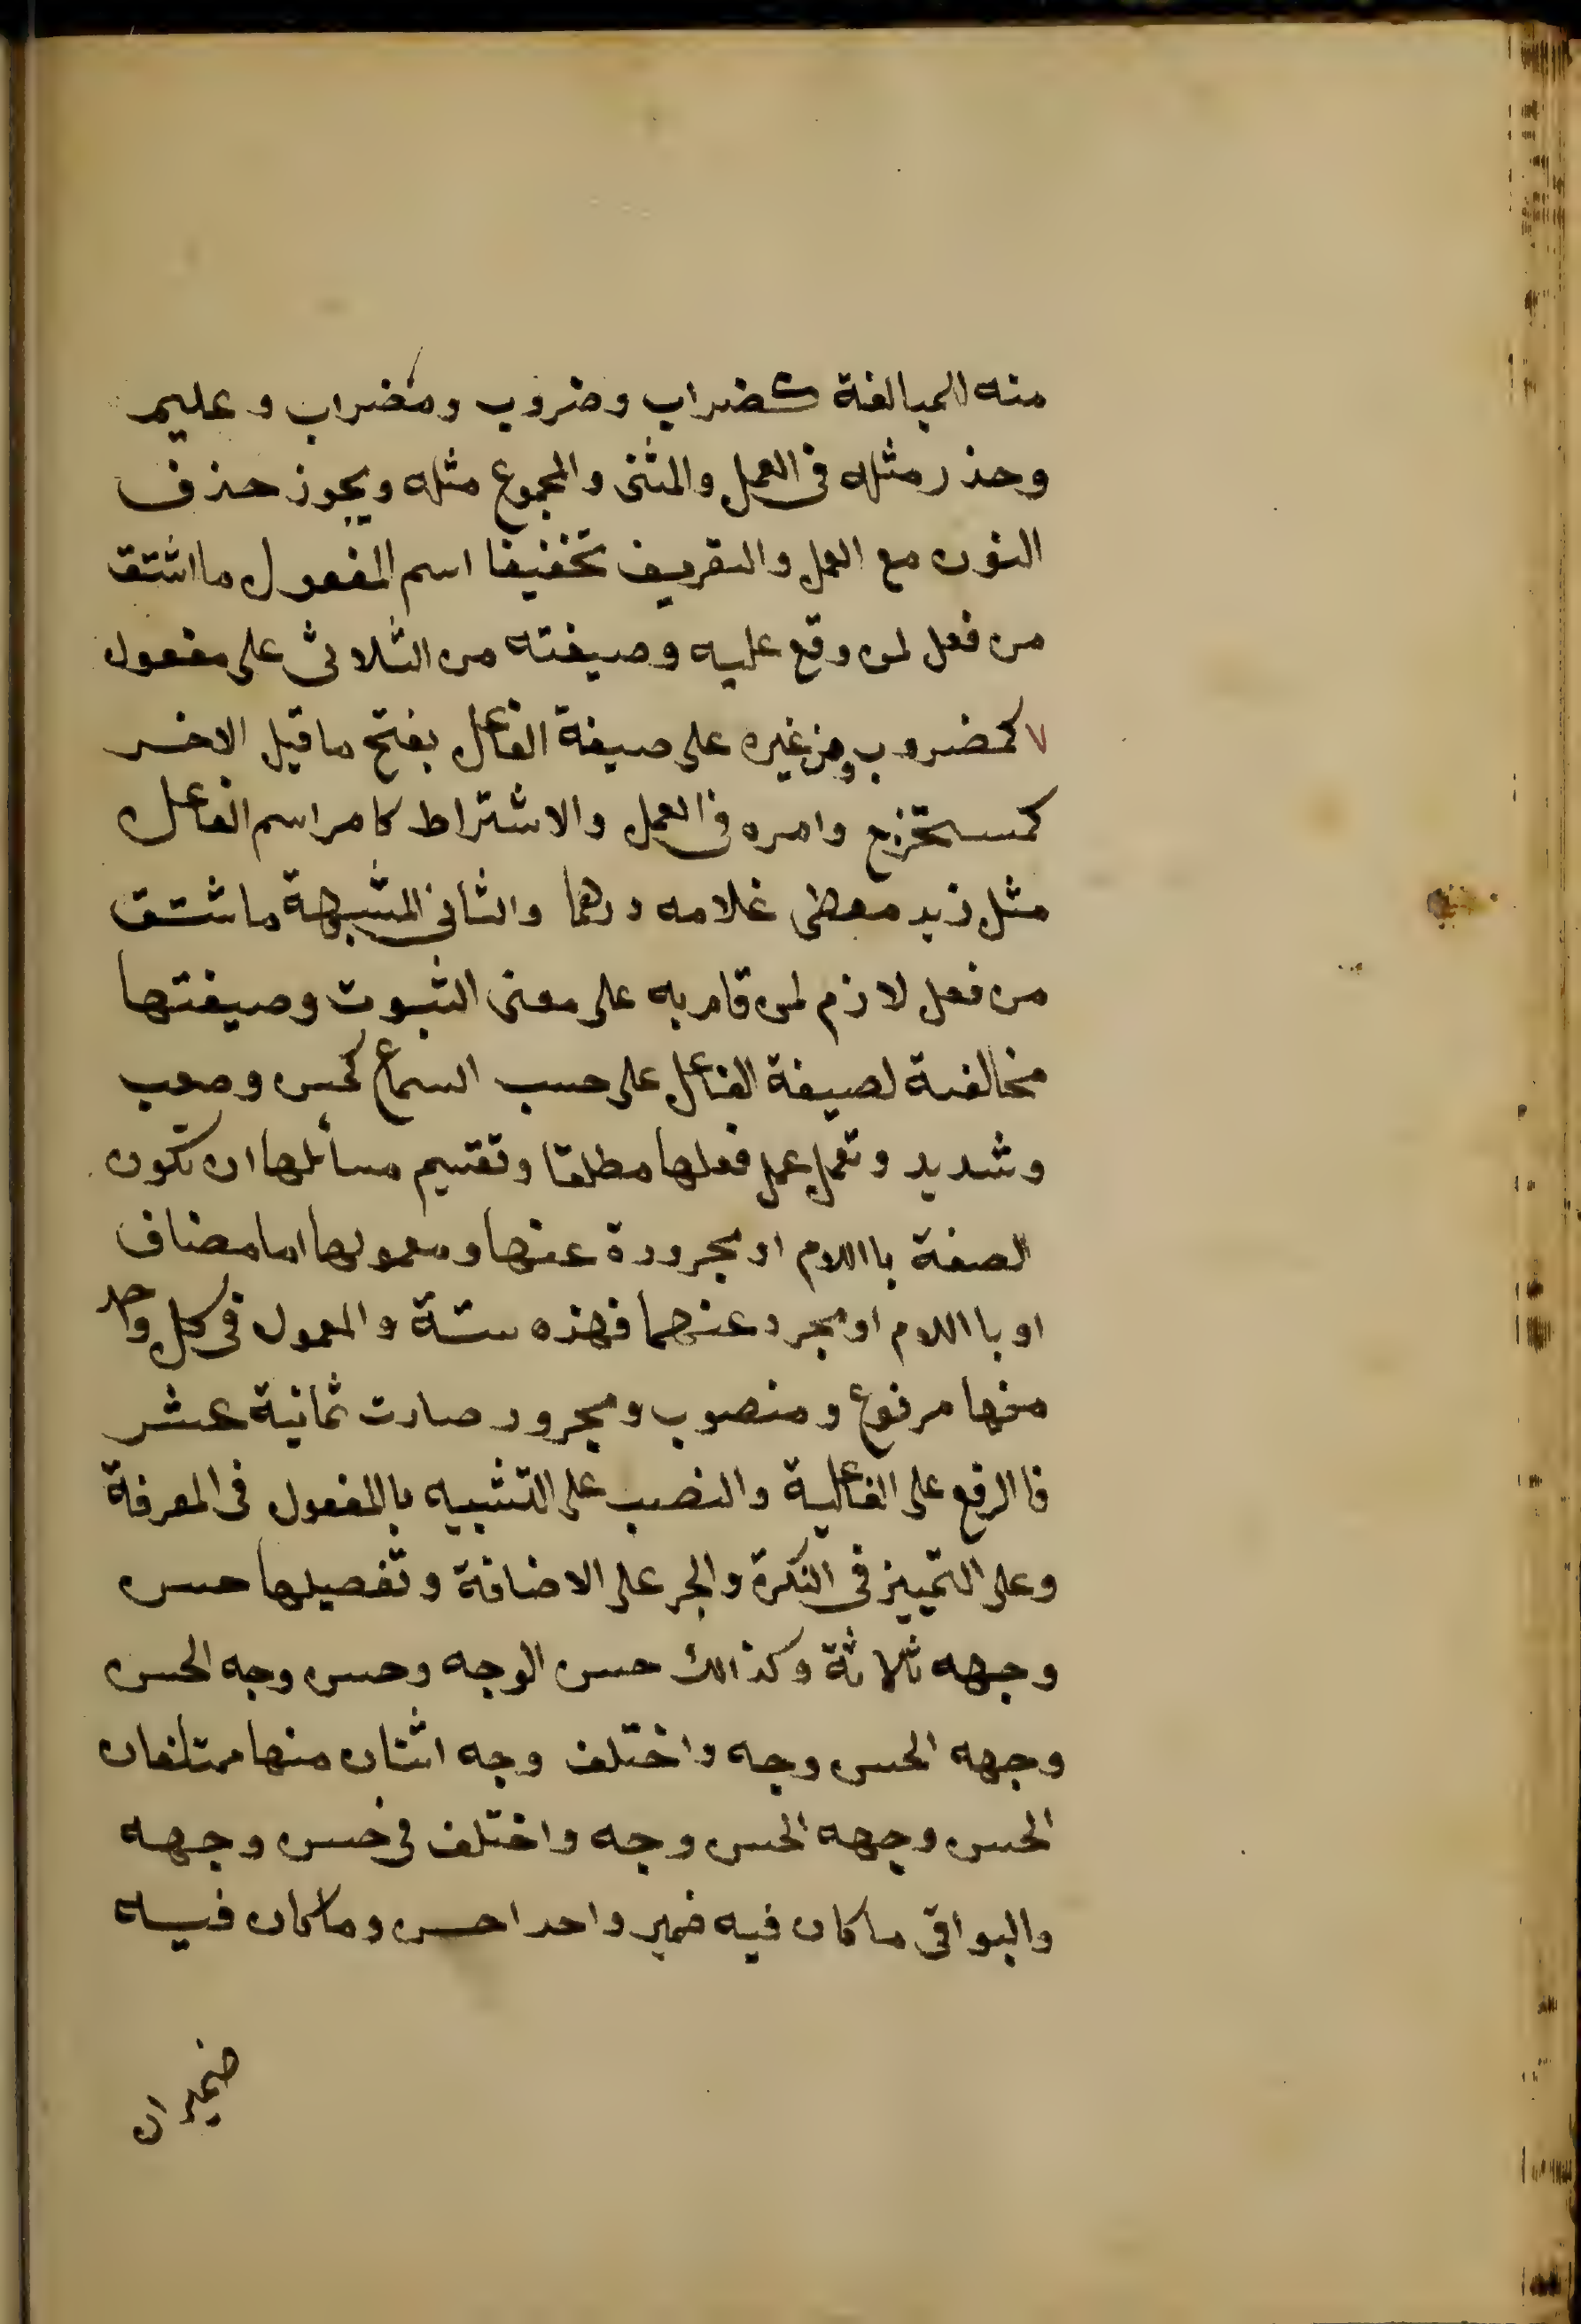 منه المبالغة كضراب وضروب ومضراب وعليم
وحذر مثله فى العمل والمثنى والمجموع مثله ويجوز حذف
النون مع العمل والتعريف تخفيفا اسم المفعول ما اشتق
من فعل لمن وقع عليه وصيغته من الثلاثى على مفعول
كمضروب ومن غيره على صيغة الفاعل بفتح ما قبل الاخر
كمستخرج وامره فى العمل والاشتراط كامر اسم الفاعل
مثل زيد معطى غلامه درهما والثانى المشبهة ماشتق
من فعل لازم لمن قام به على معنى الثبوت وصيغتها
مخالفة لصيغة الفاعل على حسب السماع كحسن وصعب
وشديد وتعمل عمل فعلها مطلقا وتقسيم مسائلها ان تكون
الصفة بااللام او مجرورة عنها ومعمولها اما مضاف
او بااللام او مجرد عنهما فهذه ستة والمعمول فى كل واحد
منها مرفوع ومنصوب ومجرور صارت ثمانية عشر
فاالرفع على الفاعلية والنصب على التشبيه باالمفعول فى المعرفة
وعلى التمييز فى النكرة والجر على الاضافة وتفصيلها حسن
وجهه ثلاثة وكذالك حسن الوجه وحسن وجه الحسن
وجهه الحسن وجه واختلف وجه اثنان منها ممتلفان
الحسن وجهه الحسن وجه واختلف فى حسن وجهه
والبواقى ما كان فيه ضمير واحد احسن وما كان فيه
ضميران